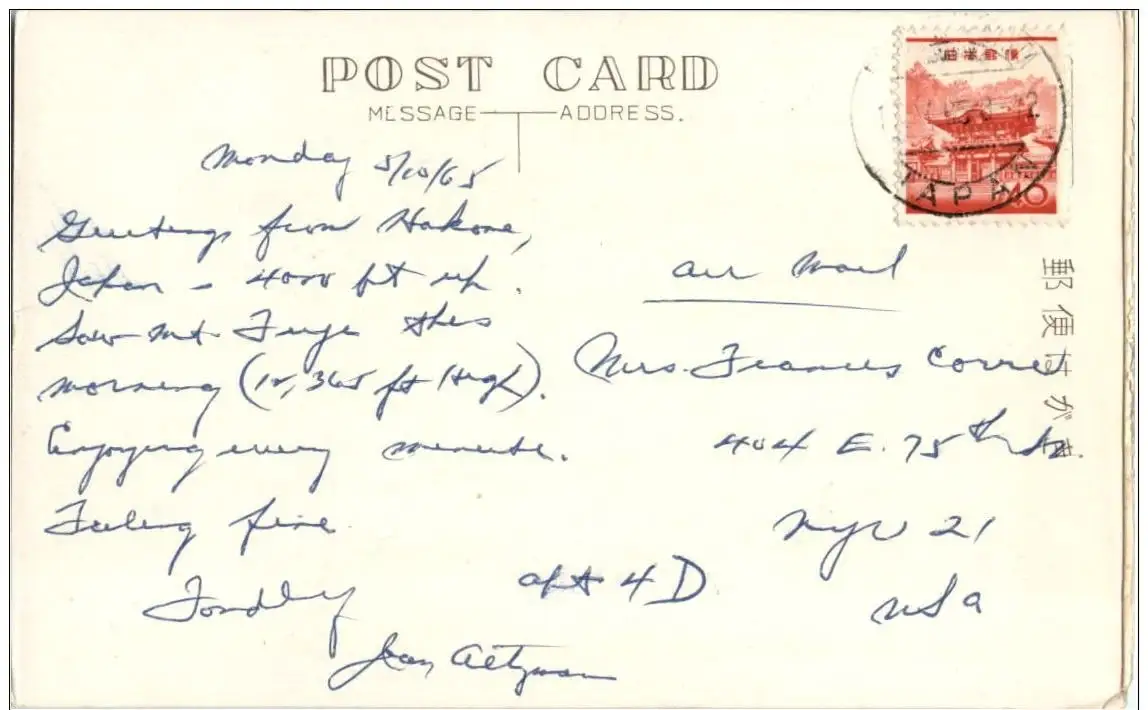 POST CARD
MESSAGE ADDRESS.
Monday 5/10/65
Greetings from Hakone,
Japan - 4000 ft up.
Saw Mt. Fuji this
morning (12,365 ft High).
Enjoying every minute.
Feeling fine
Fondly
Jean Altzman
Air Mail
Mrs. Frances Corret
404 E. 75th St.
apt 4D
NYC 21
USA
日本郵便
40
JAPAN
郵便はがき